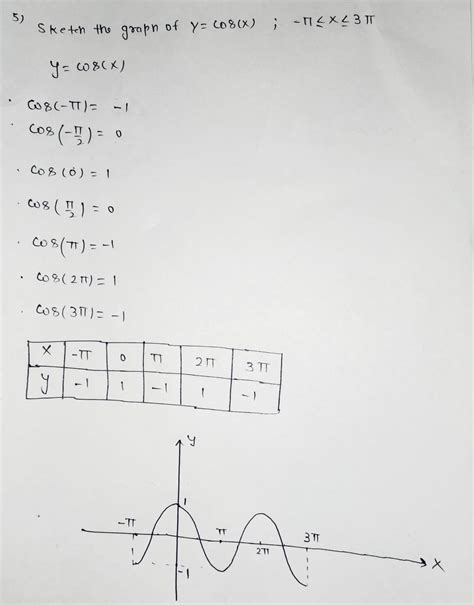 5) Sketch the graph of y = cos(x) ; -π ≤ x ≤ 3π
y = cos(x)
. cos(-π) = -1
. cos(-π/2) = 0
. cos(0) = 1
. cos(π/2) = 0
. cos(π) = -1
. cos(2π) = 1
. cos(3π) = -1
x -π 0 π 2π 3π
y -1 1 -1 1 -1
y
1
-π π 2π 3π
-1 x